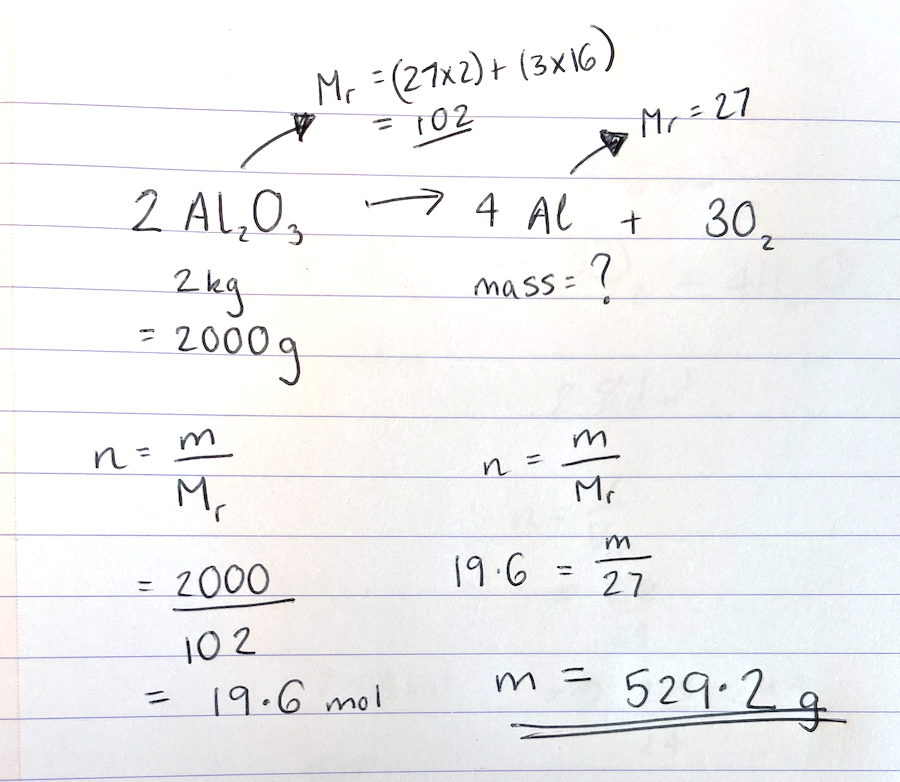 Mr = (27×2) + (3×16)
= 102
Mr = 27
2 Al₂O₃ → 4 Al + 3O₂
2kg
= 2000g
mass = ?
n = m/Mr
= 2000/102
= 19.6 mol
n = m/Mr
19.6 = m/27
m = 529.2 g